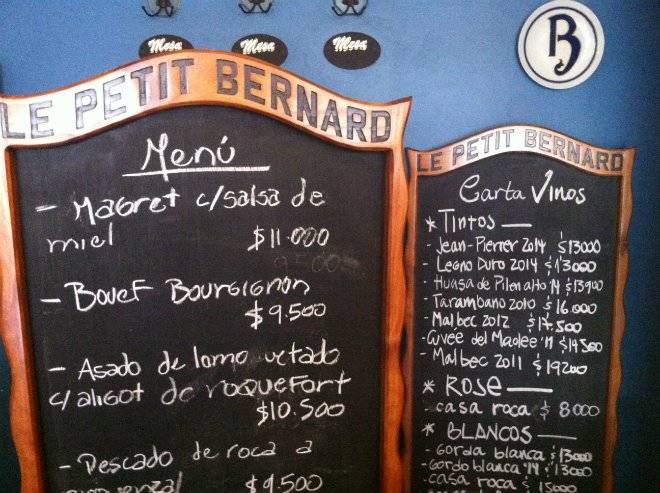 Mesa
Mesa
Mesa
B
LE PETIT BERNARD
Menú
- Magret c/salsa de
miel $11.000
- Bouef Bourgignon
$9.500
- Asado de lomo vetado
c/aligot de roquefort
$10.500
- Pescado de roca a
$9.500
LE PETIT BERNARD
Carta Vinos
* Tintos —
- Jean-Pierrer 2014 $13000
- Legno Duro 2014 $13000
- Huasa de Pilen alto '14 $13900
- Tarambano 2010 $16.000
- Malbec 2012 $17.500
- Cuvee del Maalee '11 $14500
- Malbec 2011 $19200
* ROSE —
- casa roca $8000
* BLANCOS —
- Gorda blanca $13000
- Gordo blanca '14 $13000
- casa roca